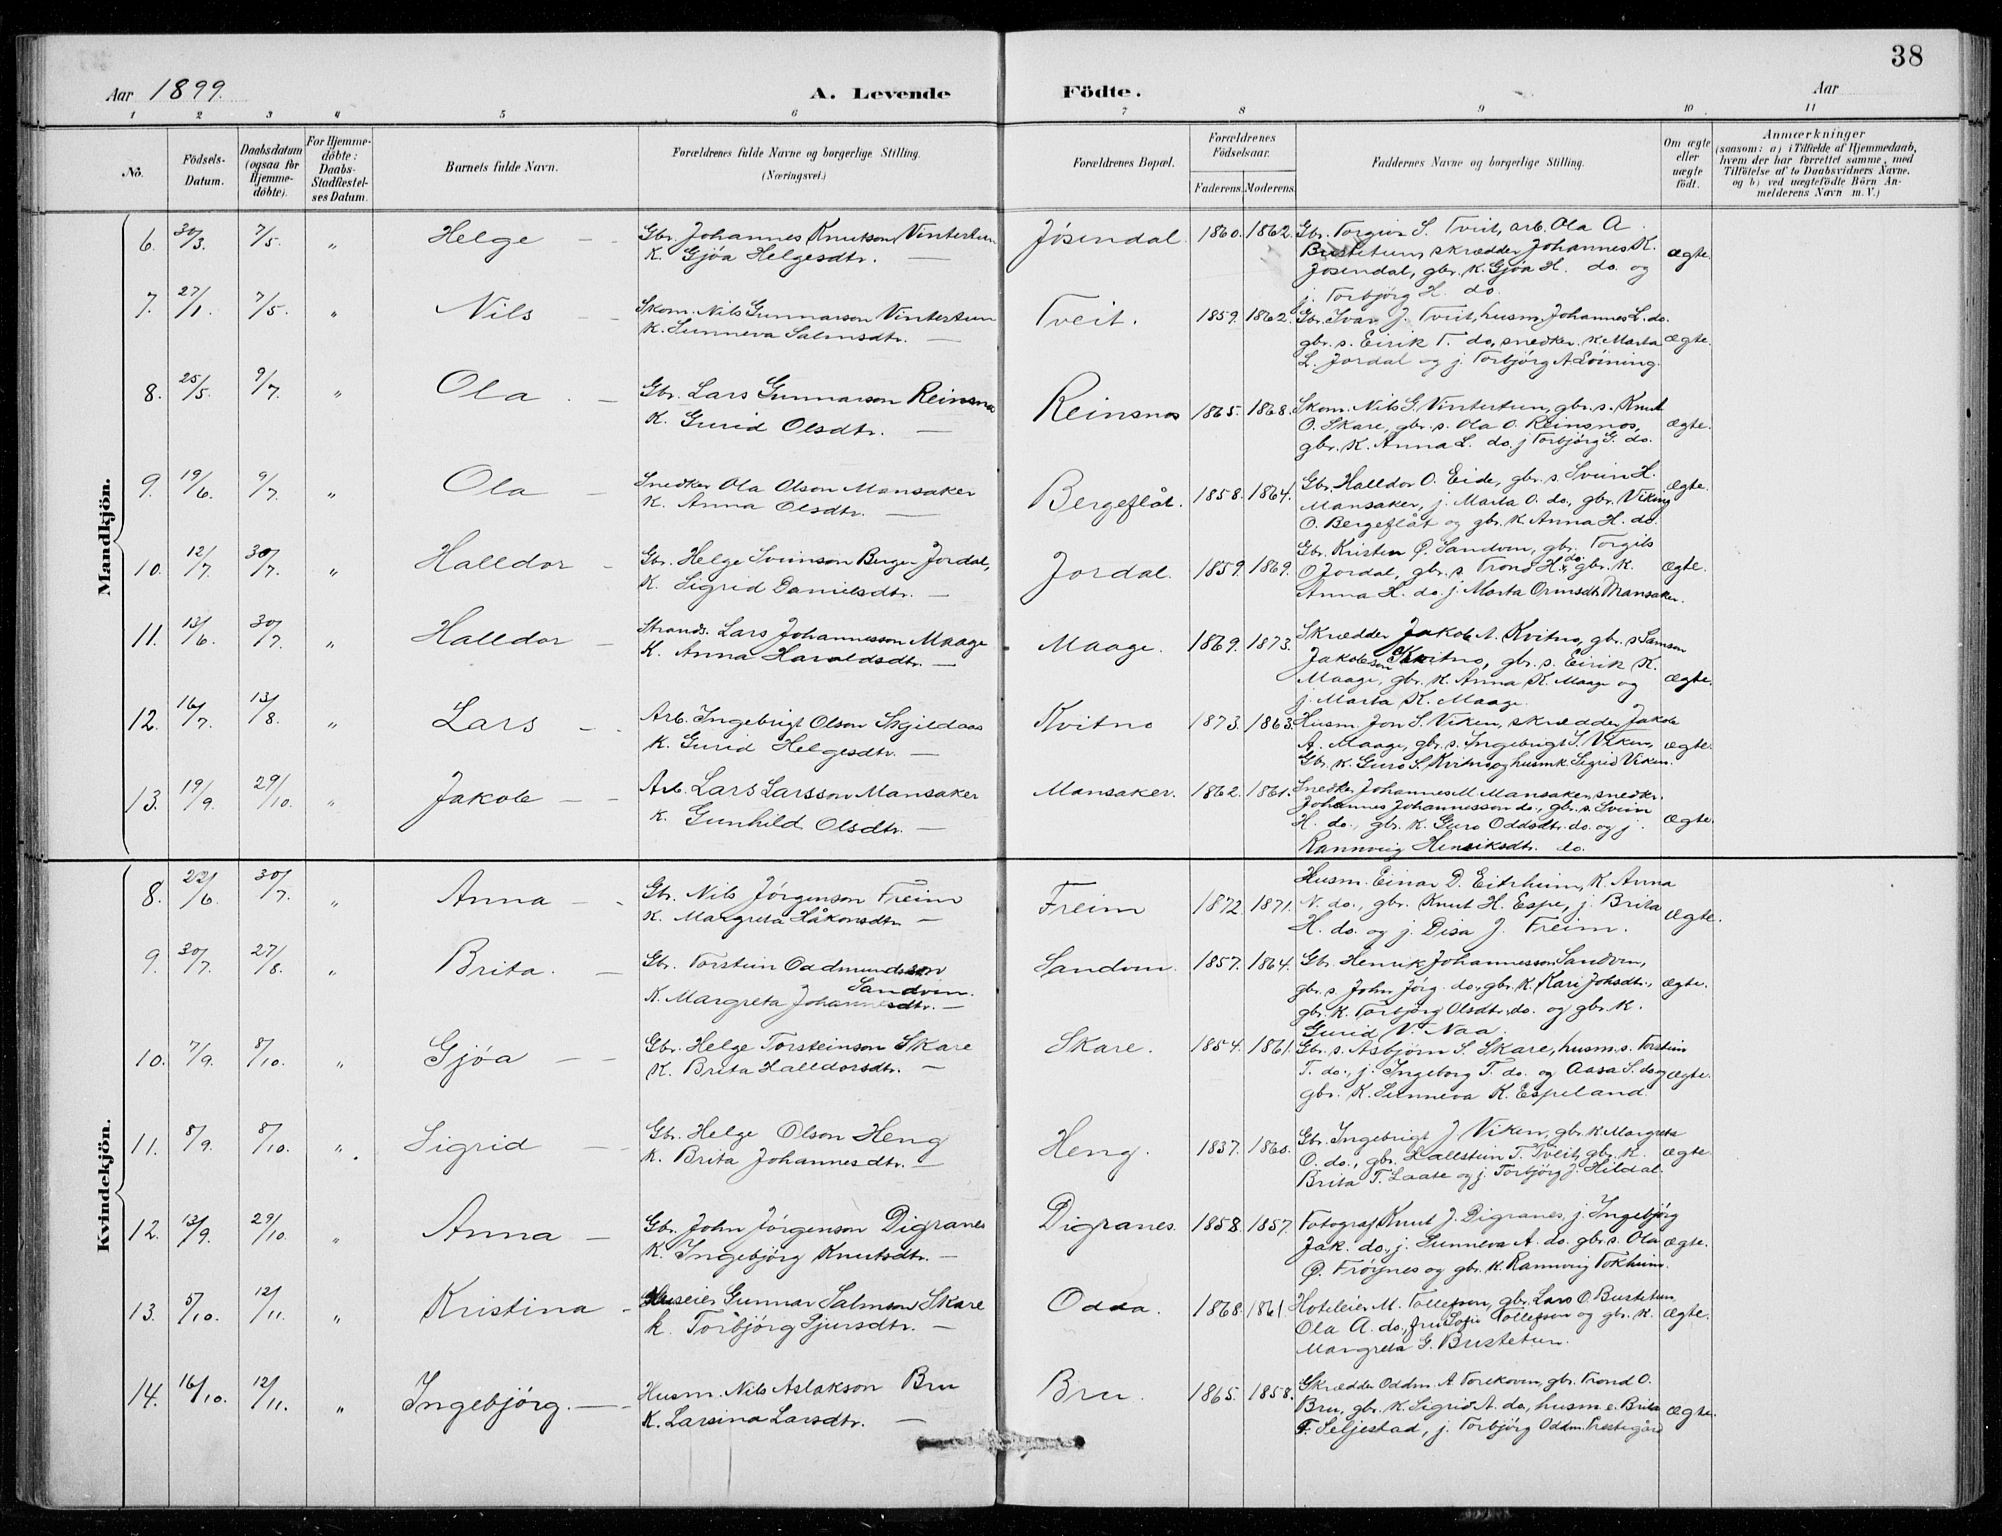 38
Aar 1899.
A. Levende Födte.
Aar
1 2 3 4 5 6 7 8 9 10 11
No.
Födsels-Datum.
Daabsdatum (ogsaa for Hjemme-döbte).
For Hjemme-döbte: Daabs-Stadfæstel-ses Datum.
Barnets fulde Navn.
Forældrenes fulde Navne og borgerlige Stilling. (Næringsvei.)
Forældrenes Bopæl.
Forældrenes Födselsaar.
Faderens. Moderens.
Faddernes Navne og borgerlige Stilling.
Om ægte eller uægte födt.
Anmærkninger
(saasom: a) i Tilfælde af Hjemmedaab,
hvem der har forrettet samme, med
Tilföielse af to Daabsvidners Navne.
og b) ved uægtefödte Börn An-
melderens Navn m. V.)
Mandkjön.
6. 30/3. 7/5. " Helge — Gbr. Johannes Knutson Vintertun Jósendal. 1860. 1862. Gbr. Torgeir S. Tveit, arb. Ola A.
K. Gjóa Helgesdtr. — Bustetun, skrædder Johannes K.
Jósendal, gbr. k. Gjóa H. do. og ægte.
j. Torbjórg H. do.
7. 27/1. 7/5. " Nils — Skom. Nils Gunnarson Vintertun Tveit. 1859. 1862. Gbr. Ivar J. Tveit, husm. Johannes L. do.
K. Sunneva Salmsdtr. — gbr. s. Eirik T. do, snedker. k. Marta ægte.
L. Jordal og j. Torbjórg A. Lóining.
8. 25/5. 9/7. " Ola — Gbr. Lars Gunnarson Reinsnos Reinsnos 1865. 1868. Skom. Nils G. Vintertun, gbr. s. Knut
K. Gurid Olsdtr. — O. Skare, gbr. s. Ola O. Reinsnos, ægte.
gbr. k. Anna L. do. j Torbjórg G. do.
9. 19/6. 9/7. " Ola — Snedker Ola Olson Mansaker Bergeflåt. 1858. 1864. Gbr. Halldor O. Eide, gbr. s. Svein H. ægte.
K. Anna Olsdtr. — Mansaker, j. Marta O. do., gbr. Viking
O. Bergeflåt og gbr. k. Anna H. do.
10. 12/7. 30/7. " Halldor — Gbr. Helge Sveinson Berger Jordal, Jordal. 1859. 1869. Gbr. Kristen Ø. Sandven, gbr. Torgils
K. Sigrid Danielsdtr. — O Jordal, gbr. s. Trond H. do., gbr. k. ægte.
Anna H. do. j. Marta Ormsdtr Mansaker.
11. 13/6. 30/7. " Halldor — Strands. Lars Johannesson Maage Maage. 1869. 1873. Skrædder Jakob A. Kvitno, gbr. s Samson
K. Anna Haraldsdtr. — Jakobson Kvitno, gbr. s. Eirik K.
Maage, gbr. k. Anna K. Maage og ægte.
j. Marta K. Maage.
12. 16/7. 13/8. " Lars — Arb. Ingebrigt Olson Skjildaas Kvitno 1873. 1863. Husm. Jon S. Viken, skrædder Jakob
K. Gurid Helgesdtr. — A. Maage, gbr. s. Ingebrigt S. Viken, ægte.
Gbr. k. Guro S. Kvitno og husmk Sigrid Viken.
13. 19/9. 29/10. " Jakob — Arb. Lars Larsson Mansaker Mansaker. 1862. 1861. Snedker Johannes M Mansaker, snedkr.
K. Gunhild Olsdtr. — Johannes Johannesson do., gbr. s. Svein
H. do., gbr. k. Guro Oddsdtr. do. og j. ægte.
Rannveig Henriksdtr. do.
Kvindekjön.
8. 22/6. 30/7. " Anna — Gbr. Nils Jörgenson Freim Freim 1872. 1871. Husm. Einar D. Eitrheim, k. Anna
K. Margreta Håkonsdtr. — N. do., gbr. Knut H. Espe, j. Brita ægte.
H. do. og j. Disa J. Freim.
9. 30/7. 27/8. " Brita. — Gbr. Torstein Oddmundsson Sandven. Sandven. 1857. 1864. Gbr. Henrik Johannesson Sandven,
K. Margreta Johannesdtr. — gbr. s. John Jórg. do., gbr. k. Kari Johsdtr., ægte.
gbr. k. Torbjórg Olsdtr. do. og gbr. k.
Gurid V. Naa.
10. 7/9. 8/10. " Gjóa — Gbr. Helge Torsteinson Skare Skare. 1854. 1861. Gbr. s. Asbjörn S. Skare, husm. s. Torstein
K. Brita Halldorsdtr. — T. do., j. Ingeborg T. do. og Aasa S. do. og ægte.
gbr. K. Sunneva K. Espeland
11. 8/9. 8/10. " Sigrid — Gbr. Helge Olson Heng Heng. 1837. 1860. Gbr. Ingebrigt J Viken, gbr. k Margreta
K. Brita Johannesdtr. — O. do., gbr. Hallstein T. Tveit, gbr. k. ægte.
Brita T. Laate og j. Torbjórg J. Hildal.
12. 13/9. 29/10. " Anna — Gbr. John Jörgenson Digranes Digranes. 1858. 1857. Fotograf Knut J. Digranes, j. Ingebjórg
K. Ingebjörg Knutsdtr. — Jak. do., j. Sunneva A. do. gbr. s. Ola ægte.
Ø. Fróynes og gbr. k. Rannveig Tokheim.
13. 5/10. 12/11. " Kristina — Huseier Gunnar Salmson Skare Odda. 1868. 1861. Hoteleier M. Tollefsen, gbr. Lars O. Bustetun,
k. Torbjórg Sjursdtr. — Ola A. do., fru Sofie Tollefsen og gbr. k. ægte.
Margreta G. Bustetun.
14. 16/10. 12/11. " Ingebjörg. — Husm. Nils Aslakson Bru Bru. 1865. 1858. Skrædder Oddm. A Forekoven, gbr. Trond O.
K. Larsina Larsdtr. — Bru, gbr. k. Sigrid A. do, husm e. Brita ægte.
T. Seljestad, j. Torbjörg Oddm. Prestegård